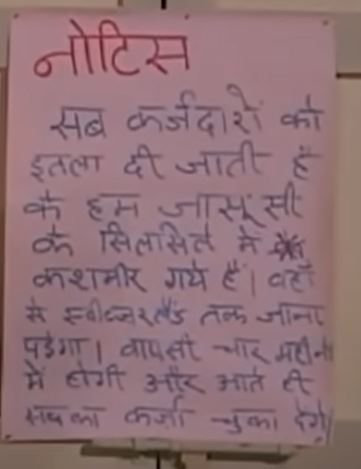 नोटिस
सब कर्जदारों को
इतला दी जाती है
के हम जासूसी
के सिलसिले में
कशमीर गये हैं। वहाँ
से स्वीटजरलैंड तक जाना
पड़ेगा। वापसी चार महीने
में होगी और आते ही
सबका कर्जा चुका देंगे।